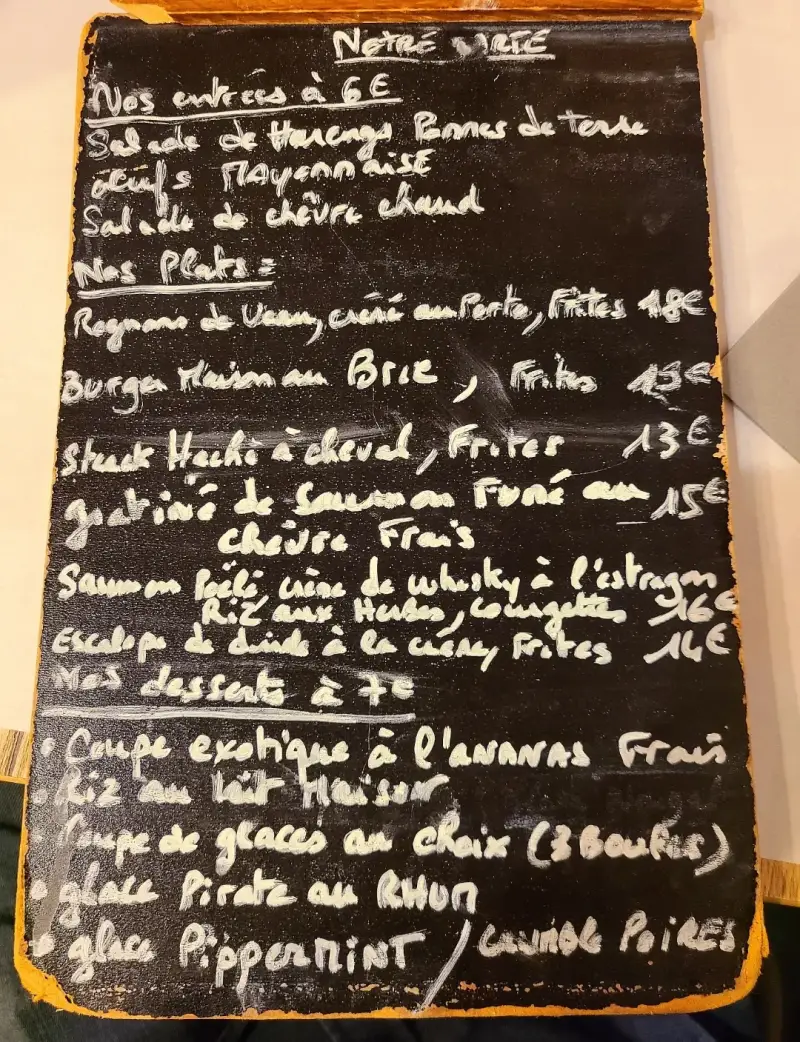 NOTRE CARTE
Nos entrées à 6€
Salade de Harengs Pommes de terre
œufs MAyonnaisE
Salade de chèvre chaud
Nos Plats :
Rognons de Veau, crème au Porto, Frites 18€
Burger Maison au BRIE, Frites 15€
Steack Haché à cheval, Frites 13€
gratiné de Saumon Fumé au 15€
chèvre Frais
Saumon Poêlé, crème de whisky à l'estragon
RIZ aux Herbes, courgettes 16€
Escalope de dinde à la crème, Frites 14€
Nos desserts à 7€
• Coupe exotique à l'ANANAS Frais
• Riz au lait Maison
• Coupe de glaces au choix (3 Boules)
• glace Pirate au RHUM
• glace PippermINT / POIRES